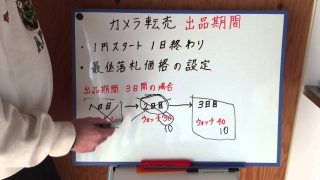 カメラ転売 出品期間
・1円スタート 1日終わり
・最低落札価格の設定
出品期間 3日間の場合
1日目 2日目 3日目
ウォッチ 30 ウォッチ 40
10 10